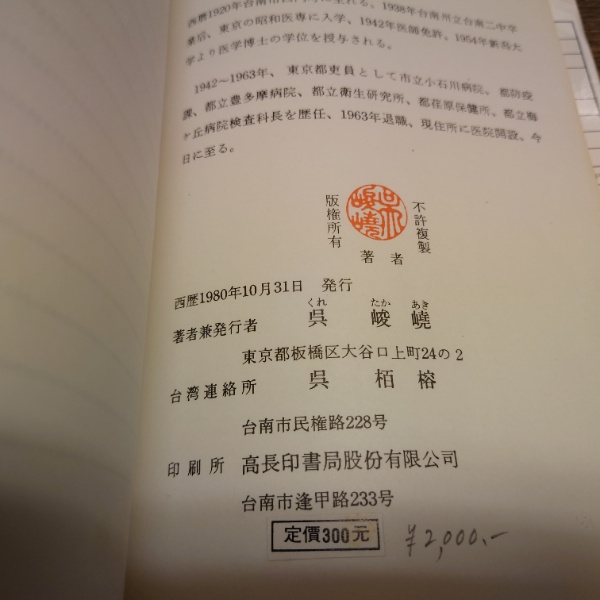 西暦1920年台南市
に生れる。1938年台南州立台南二中卒
業后、東京の昭和医専に入学、1942年医師免許、1954年新潟大
学より医学博士の学位を授与される。
1942〜1963年、東京都吏員として市立小石川病院、都防疫
課、都立豊多摩病院、都立衛生研究所、都荏原保健所、都立梅
ケ丘病院検査科長を歴任、1963年退職、現住所に医院開設、今
日に至る。
不許複製
呉峻嶢
版権所有
著者
西歴1980年10月31日 発行
くれ たか あき
著者兼発行者 呉 峻 嶢
東京都板橋区大谷口上町24の2
台湾連絡所 呉 栢 榕
台南市民権路228号
印刷所 高長印書局股份有限公司
台南市逢甲路233号
定價300元
¥2,000.-